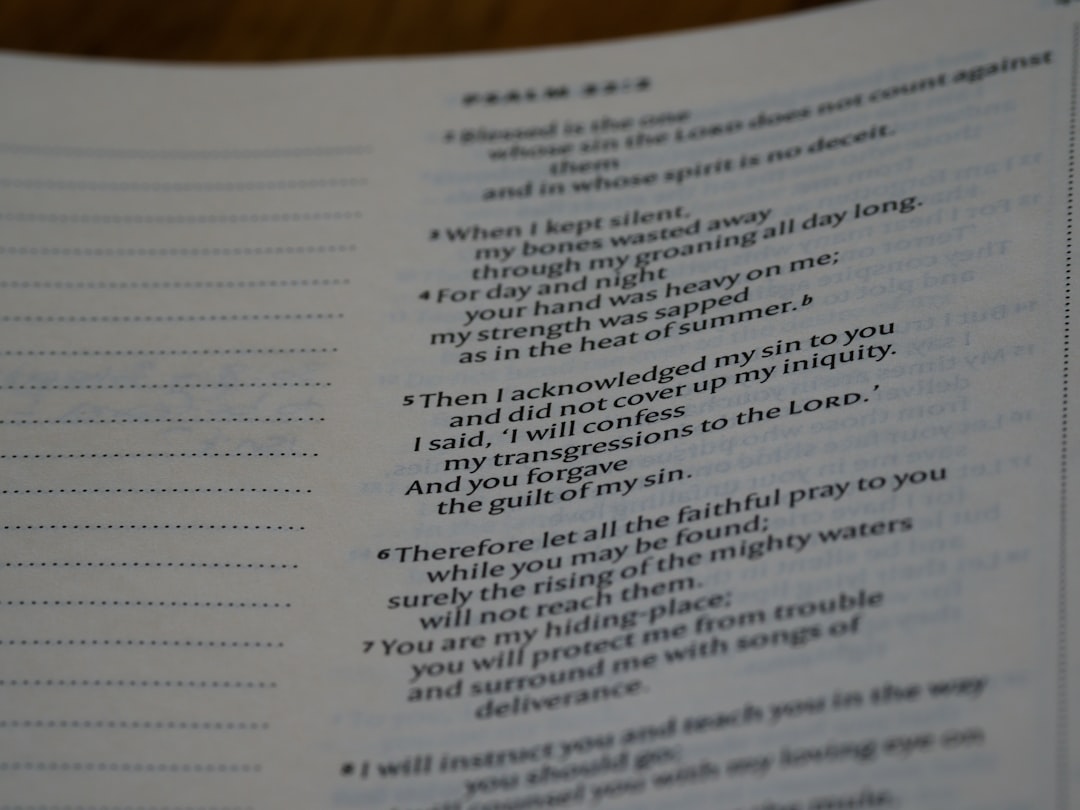 PSALM 32:2
2 Blessed is the one
whose sin the LORD does not count against
them
and in whose spirit is no deceit.
3 When I kept silent,
my bones wasted away
through my groaning all day long.
4 For day and night
your hand was heavy on me;
my strength was sapped
as in the heat of summer. b
5 Then I acknowledged my sin to you
and did not cover up my iniquity.
I said, ‘I will confess
my transgressions to the LORD.’
And you forgave
the guilt of my sin.
6 Therefore let all the faithful pray to you
while you may be found;
surely the rising of the mighty waters
will not reach them.
7 You are my hiding-place;
you will protect me from trouble
and surround me with songs of
deliverance.
8 I will instruct you and teach you in the way
you should go;
counsel you with my loving eye on